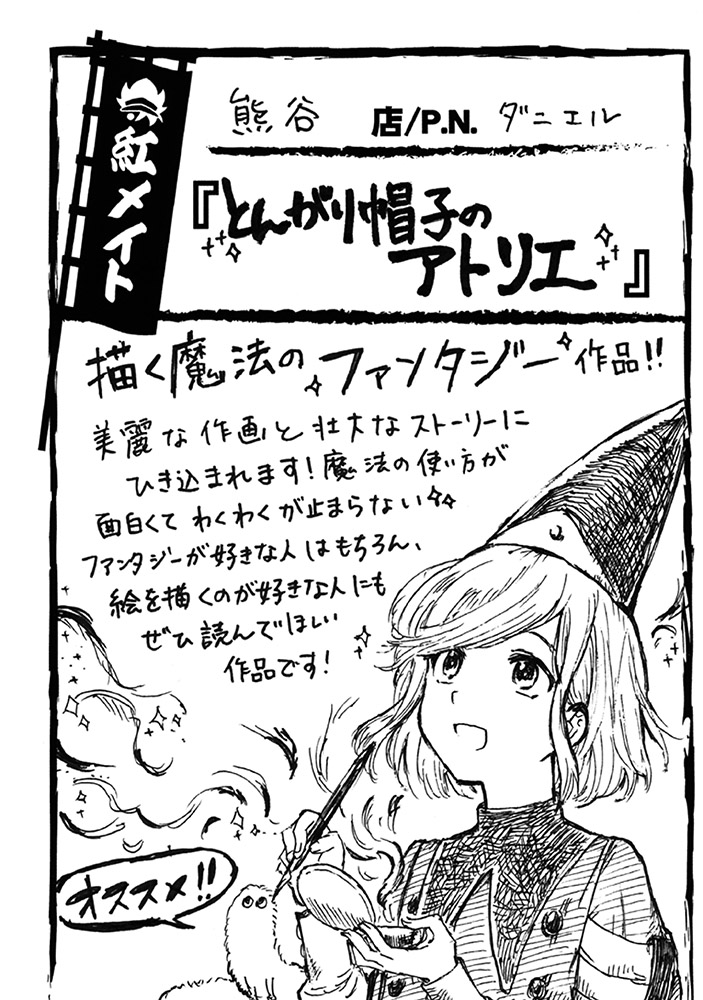 紅メイト
熊谷 店/P.N. ダニエル
『とんがり帽子の
アトリエ』
描く魔法のファンタジー作品!!
美麗な作画と壮大なストーリーに
ひき込まれます!魔法の使い方が
面白くてわくわくが止まらない
ファンタジーが好きな人はもちろん、
絵を描くのが好きな人にも
ぜひ読んでほしい
作品です!
オススメ!!